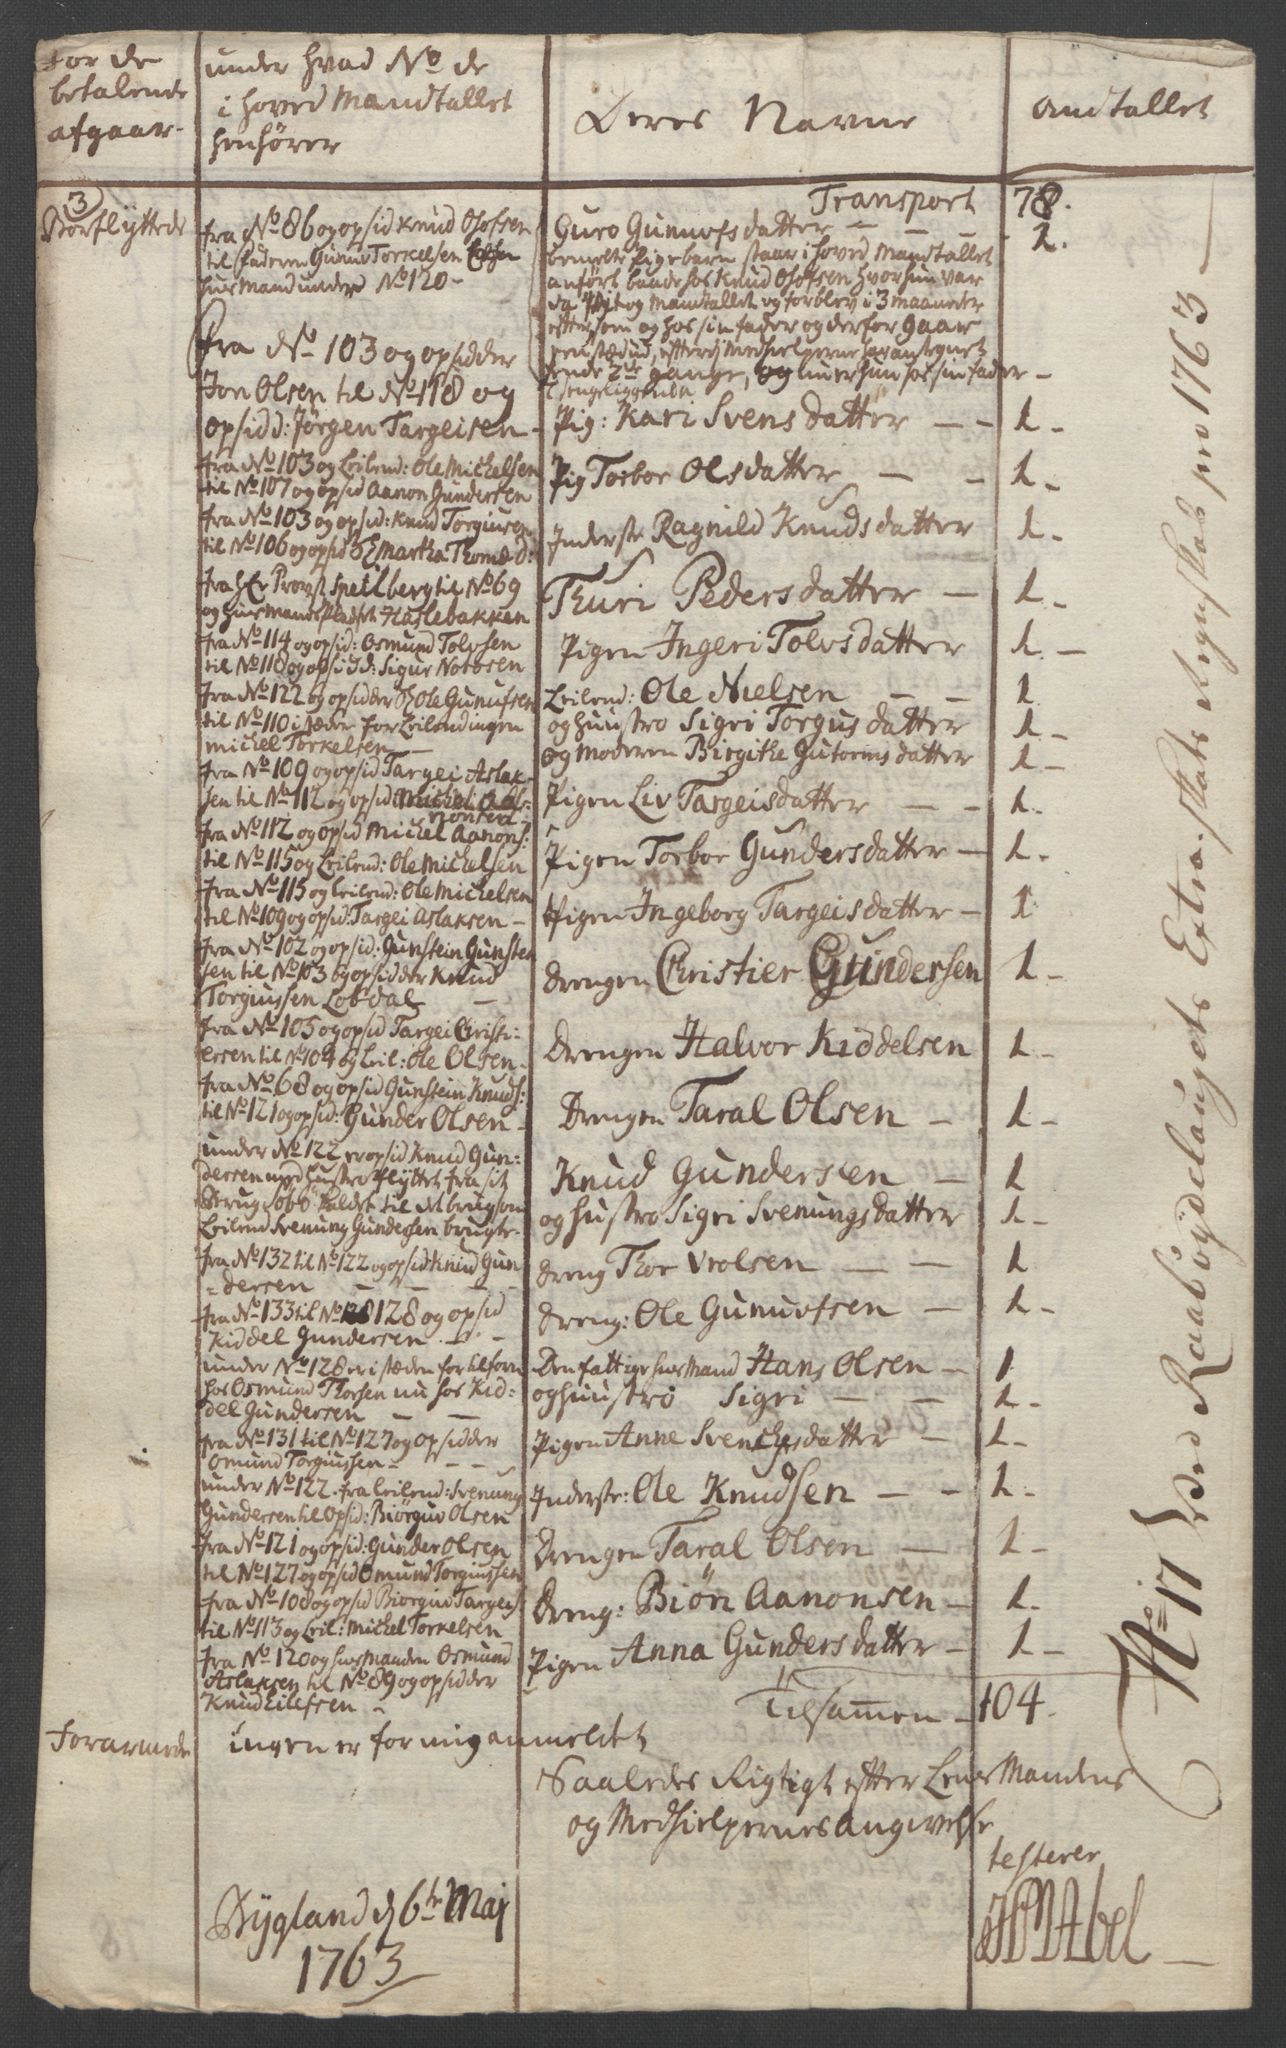 for de
betalende
afgaar-
under hvad No de
i hoved Mandtallet
henhører
Deres Navne
Andtallet
3
Bortflyttede
Transport 78.
fra No 86 og opsid Knud Olofsen
til faderen Gunuv Torkelsen
huusmand under No 120 -
Guro Gunuofs datter - - - 1.
bemelte Pigebarn staar i hoved Mandtallet
anført baade hos Knud Olofsen hvor hun var
og Mandtallet og forblev i 3 maaneder
som og hos sin fader og derfor gaar
Medhielperne har antegnet
hende 2de gange, og nu er hun hos sin fader -
sengeliggende
fra No 103 og opsidder
Jon Olsen til No 118 og
opsidd: Jørgen Targeisen -
Pig: Kari Svens datter - - 1 -
fra No 103 og Leilend: Ole Michelsen
til No 107 og opsid Aanon Gundersen
Pig Torbor Olsdatter - - 1 -
fra No 103 og opsid: Knud Torgiusen
til No 106 og opsid Martha Thomæd:
Inderste Ragnild Knuds datter 1 -
fra Hr Provst Speilberg til No 69
og huusmandspladset Haslebakken
Thuri Peders datter - 1 -
fra No 114 og opsid: Osmund Tolvsen
til No 118 og opsidd: Sigur Notoesen
Pigen Ingeri Tolvs datter 1. -
fra No 122 og opsidder Ole Gunufsen
til No 110 i stæden for Leilendingen
Michel Torkelsen -
Leilend: Ole Nielsen - - 1
og huustro Sigri Torgus datter 1 -
og moderen Birgithe Gutorms datter 1 -
fra No 109 og opsid Targei Aslak-
sen til No 112 og opsid Michel Aa-
nonsen
Pigen Liv Targeisdatter - - 1.
fra No 112 og opsid Michel Aanons:
til No 115 og Leilend: Ole Michelsen
Pigen Torbor Gundersdatter - 1 -
fra No 115 og Leilend: Ole Michelsen
til No 109 og opsid: Targei Aslaksen -
Pigen Ingeborg Targeis datter - 1
fra No 102 og opsid: Gunstein Gunstein
sen til No 103 og opsidder Knud
Torgiussen Lobdal -
Drengen Christier Gundersen 1 -
fra No 105 og opsid Targei Christi-
ersen til No 104 og Leil: Ole Olsen -
Drengen Halvor Kiddelsen 1 -
fra No 68 og opsid Gunstein Knuds:
til No 121 og opsid: Gunder Olsen -
Drengen Taral Olsen - 1 -
under No 122 er opsid Knud Gun-
dersen med hustro flyttet fra sit
brug kaldet til et brug som
Leilend Svenung Gundersen brugte -
Knud Gundersen - 1
og hustro Sigri Svenungs datter 1 -
fra No 132 til No 122 og opsid: Knud Gun
=dersen - - -
dreng Thor Vrolsen - - 1
fra No 133 til No 128 og opsid
Kiddel Gundersen - -
dreng: Ole Gunuofsen - 1 -
under No 128 er i stæden for tilforn
hos Osmund Thorsen nu hos Kid=
del Gundersen - -
Den fattige huusMand Hans Olsen - 1
og huustro Sigri - - 1 -
fra No 131 til No 127 og opsidder
Omund Torgiussen - - -
Pigen Anne Svenchesdatter - 1 -
under No 122 fra Leilend: Svenung
Gundersen til Opsid: Biørguv Olsen
Inderste: Ole Knudsen - - 1 -
fra No 121 og opsid: Gunder Olsen
til No 127 og opsid Omund Torgiussen
Drengen Taral Olsen - 1 -
fra No 108 og opsid Biorguv Targeis:
til No 113 og Leil: Michel Torkelsen
Dreng: Biørn Aanonsen - 1 -
fra No 120 og huusmanden Osmund
Aslaksen til No 89 og opsidder
Knud Eilefsen -
Pigen Anna Gunders datter - 1 -
Tilsammen - 104.
Forarmede
ingen er for mig anmeldet
Saaledes Rigtigt efter LensMandens
og Medhielpernes angivelse
testerer
Bygland d 6te Maj
1763
Abel
No 17 Ved Raabøydelaugets Extra-skats Regnskab pro 1763